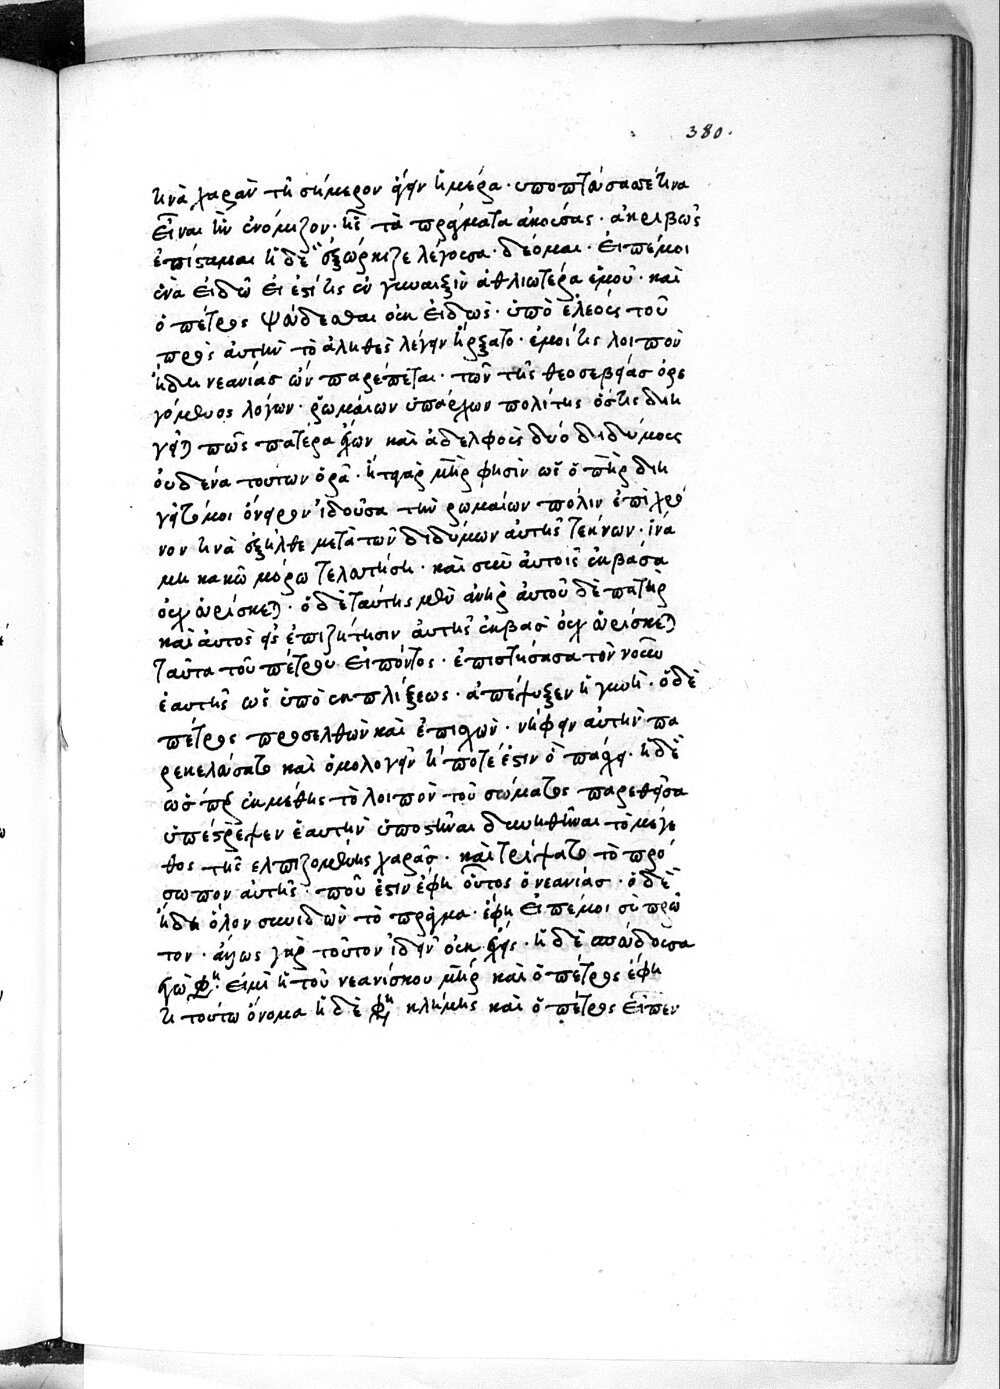 380.
τινὰ χαρὰν τῆ σήμερον ἄγειν ἡμέρα· ὑποπτεύσασά τινα
εἶναι ἣν ἐνόμιζον· καὶ τὰ πράγματα ἀκούσας· ἀκριβῶς
ἐπίσταμαι ἡ δὲ ἐξώρκιζε λέγουσα· δέομαι· εἰπέ μοι
ἵνα εἰδῶ εἰ ἐστί τις ἐν γυναιξὶν ἀθλιωτέρα ἐμοῦ· καὶ
ὁ πέτρος ψεύδεσθαι οὐκ εἰδὼς· ὑπὸ ἐλέους τοῦ
πρὸς αὐτὴν τὸ ἀληθὲς λέγειν ἤρξατο· ἐμοί τις λοιπὸν
ἤδη νεανίας ὢν παρέπεται· τῶν τῆς θεοσεβείας ὀρε
γόμενος λόγων· ῥωμαίων ὑπάρχων πολίτης ὅστις διη
γεῖται πῶς πατέρα ἔχων καὶ ἀδελφοὺς δύο διδύμους
οὐδένα τούτων ὁρᾶ· ἥ τε γὰρ μὴρ φησὶν ὡς ὁ πὴρ διη
γεῖτό μοι ὄνειρον ἰδοῦσα τὴν ῥωμαίων πόλιν ἐπὶ χρό
νον τινὰ ἐξῆλθε μετὰ τῶν διδύμων αὐτῆς τέκνων· ἵνα
μὴ κακῶ μόρω τελευτήση· καὶ σὺν αὐτοῖς ἐκβᾶσα
οὐχ εὑρίσκεται· ὁ δὲ ταύτης μὲν ἀνὴρ αὐτοῦ δὲ πατὴρ
καὶ αὐτὸς εἰς ἐπιζήτησιν αὐτῆς ἐκβὰς οὐχ εὑρίσκεται
ταῦτα τοῦ πέτρου εἰπόντος· ἐπιστήσασα τὸν νοῦν
ἑαυτῆς ὡς ὑπὸ ἐκπλήξεως· ἀπέψυξεν ἡ γυνὴ· ὁ δὲ
πέτρος προσελθὼν καὶ ἐπισχὼν· νήφειν αὐτὴν πα
ρεκελεύσατο καὶ ὁμολογεῖν τί ποτέ ἐστιν ὃ πάσχει· ἡ δὲ
ὥσπερ ἐκ μέθης τὸ λοιπὸν τοῦ σώματος παρεθεῖσα
ὑπέστρεψεν ἑαυτὴν ὑποστῆναι δυνηθῆναι τὸ μέγε
θος τῆς ἐλπιζομένης χαρᾶς· καὶ τρίψασα τὸ πρό
σωπον αὐτῆς· ποῦ ἐστιν ἔφη οὗτος ὁ νεανίας· ὁ δὲ
ἤδη ὅλον συνιδὼν τὸ πρᾶγμα· ἔφη εἰπέ μοι σὺ πρῶ
τον· ἄλλως γὰρ τοῦτον ἰδεῖν οὐκ ἔχεις· ἡ δὲ σπεύδουσα
ἐγώ φη· εἰμὶ ἡ τοῦ νεανίσκου μὴρ καὶ ὁ πέτρος ἔφη
τί τούτω ὄνομα ἡ δὲ φη κλήμης καὶ ὁ πέτρος εἶπεν